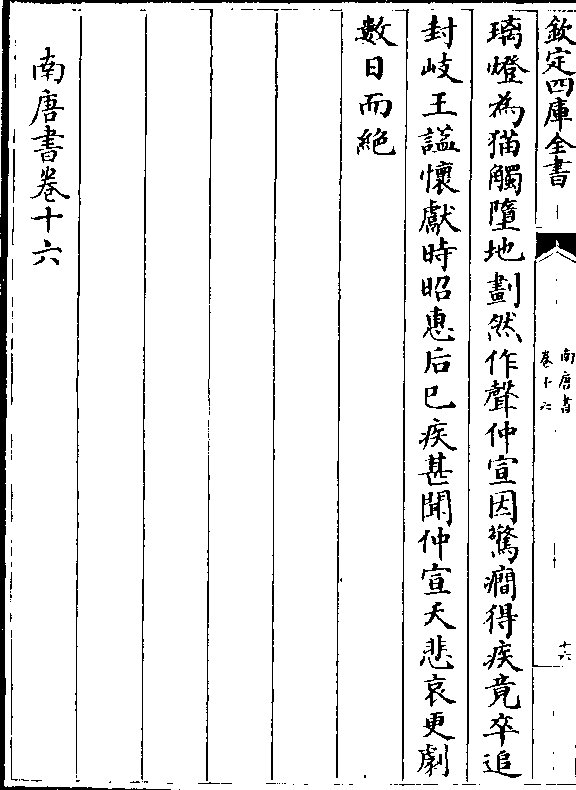 欽定四庫全書
南唐書
卷十六
十六
璃燈為猫觸墮地劃然作聲仲宣因驚癎得疾竟卒追
封岐王諡懷獻時昭惠后已疾甚聞仲宣夭悲哀更劇
數日而絶
南唐書卷十六